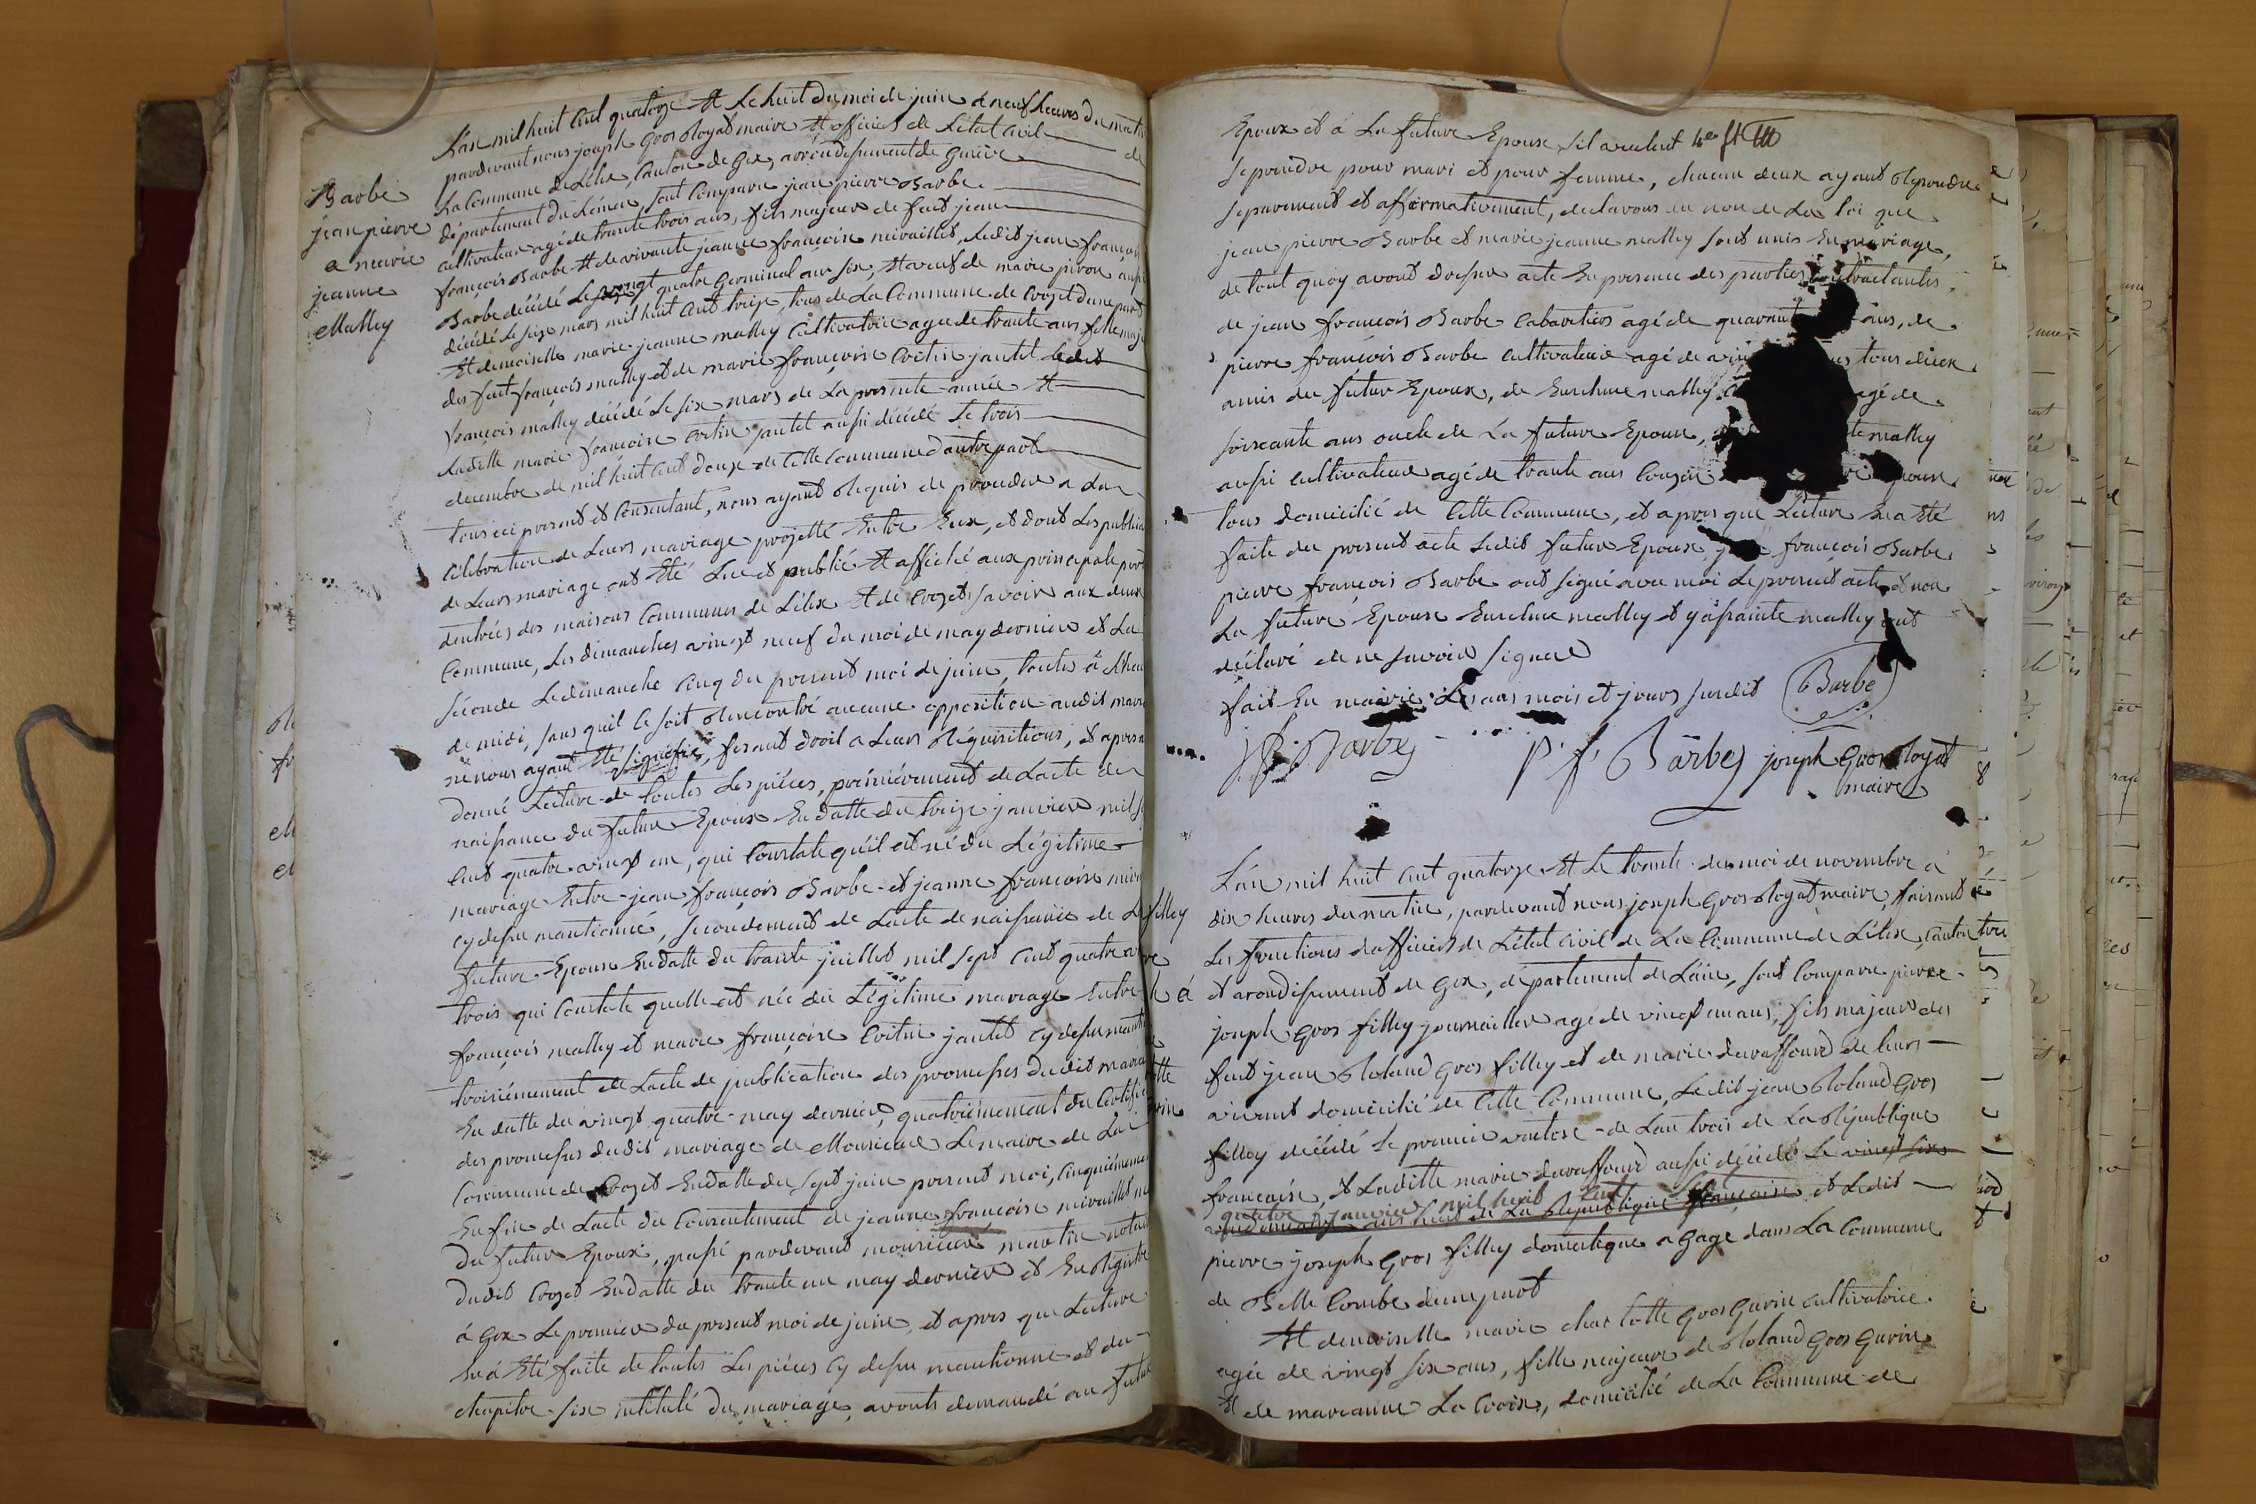 Barbe
jean pierre
a marie
jeanne
Malley
L'an mil huit cent quatorze Et le huit du moi de juin a neuf heures du matin
pardevant nous joseph Gros Royat maire Et officier de L'état Civil de
La Commune de Lélex, Canton de Gex, arrondisement de Genève
département du Léman, sont Comparu jean pierre Barbe
cultivateur agé de trante trois ans, fils majeur de feut jean
françois Barbe Et de vivante jeanne françoise nivaillet, Ledit jean françois
Barbe décédé Le vingt quatre Germinal an six, Et veuf de marie piron aussi
décédé Le six mars mil huit Cent treize, tous de La Commune de Crozet dune part
Et demoiselle marie jeanne malley Cultivatrice agee de trante ans fille maj
des feut françois malley et de marie françoise Crétin jantet Ledit
françois malley décédé Le six mars de La presente année Et
Laditte marie françoise Crétin jantet aussi décédé Le trois
decembre de mil huit Cent douze de Cette Commune dautre part
tous ici present et Consentant, nous ayant Requis de proceder a La
Célébration de Leurs mariage projetté Entre Eux, et dont Les public
de Leurs mariage ont Eté Lue et publié Et affiché aux principale port
dentrées des maisons Communes de Lélex Et de Crozet, savoir aux deux
Commune, Les dimanches vingt neuf du moi de may dernier et La
séconde Le dimanche Cinq du present moi de juin, toutes à Lheur
de midi, sans quil Ce soit Rencontré aucune opposition audit maria
ne nous ayant Eté signifié, fesant droit a Leurs Réquisitions, et apres a
donné Lecture de toutes Les piéces, premiérement de Lacte de
naissance du futur Epoux En datte du treize janvier mil s
Cent quatre vingt un, qui Constate quil est né du Légitime
mariage Entre jean françois Barbe et jeanne françoise niv
cy dessu mantionné, secondement de Lacte de naissance de La
future Epouse En datte du trante juillet mil sept Cent quatre v
trois qui Constate quelle est née du Légitime mariage Entre
françois malley et marie françoise Crétin jantet cy dessu mantio
troisiémement de Lacte de publication des promesses dudit maria
En datte du vingt quatre may dernier, quatriémement du Certific
des promesses dudit mariage de Monsieur Le maire de La
Commune de Crozet En datte du sept juin present moi, Cinquiémeme
Enfin de Lacte du Consentement de jeanne françoise nivaillet m
du futur Epoux, passé pardevant monsieur martin nota
dudit Crozet En datte du trante un may dernier et En Régistré
á Gex Le premier du present moi de juin, et apres que Lecture
En á Eté faite de toutes Les piéces cy dessu mantionné et du
chapitre six intitulé Du mariage, avonts demandé au futur
Epoux et á La future Epouse sil veulent
se prendre pour mari et pour femme, chacun deux ayant Repondu
separement et affirmativement, declarons au non de La loi que
jean pierre Barbe et marie jeanne malley sont unis En mariage,
de tout quoy avont dressee acte En presence des parties Contractantes,
de jean françois Barbe Cabaretier agé de quarant ans, de
pierre françois Barbe cultivateur agé de tous deux
amis du futur Epoux, de malley agé de
soixcante ans oncle de La future Epouse, malley
aussi cultivateur agé de trante ans Cousin
tous domicilié de Cette Commune, et apres que Lecture En a Eté
faite du present acte Ledit futur Epoux, françois Barbe
pierre françois Barbe ont signé avec moi Le present acte et non
La future Epouse malley et malley ont
déclaré de ne savoir signer
fait En mairie Les ans mois et jours susdit Barbe
J f Barbe P. f. Barbe joseph Gros Royat
maire
L'an mil huit Cent quatorze Et Le trante du moi de novembre á
dix heures du matin, pardevant nous joseph Gros Royat maire, faisant
Les fonctions dofficier de L'état Civil de La Commune de Lélex, Canton
et arondisement de Gex, département de Lain, sont Comparu pierre
joseph Gros filley journaillier agé de vingt un ans, fils majeur des
feut jean Roland Gros filley et de marie duraffourd de leurs
vivant domicilié de Cette Commune, Ledit jean Roland Gros
filley décédé Le premier vantose de Lan trois de La République
francaise, et Laditte marie duraffourd aussi décédé Le vingt six
quatre janvier mil huit Cent
ans huit de La République francaise et Ledit
pierre joseph Gros filley domestique a Gage dans La Commune
de Belle Combe dune part
Et demoiselle marie charlotte Gros Gurin Cultivatrice
agée de vingt six ans, fille majeure de Roland Gros Gurin
Et de marianne La Croix, domicilié de La Commune de